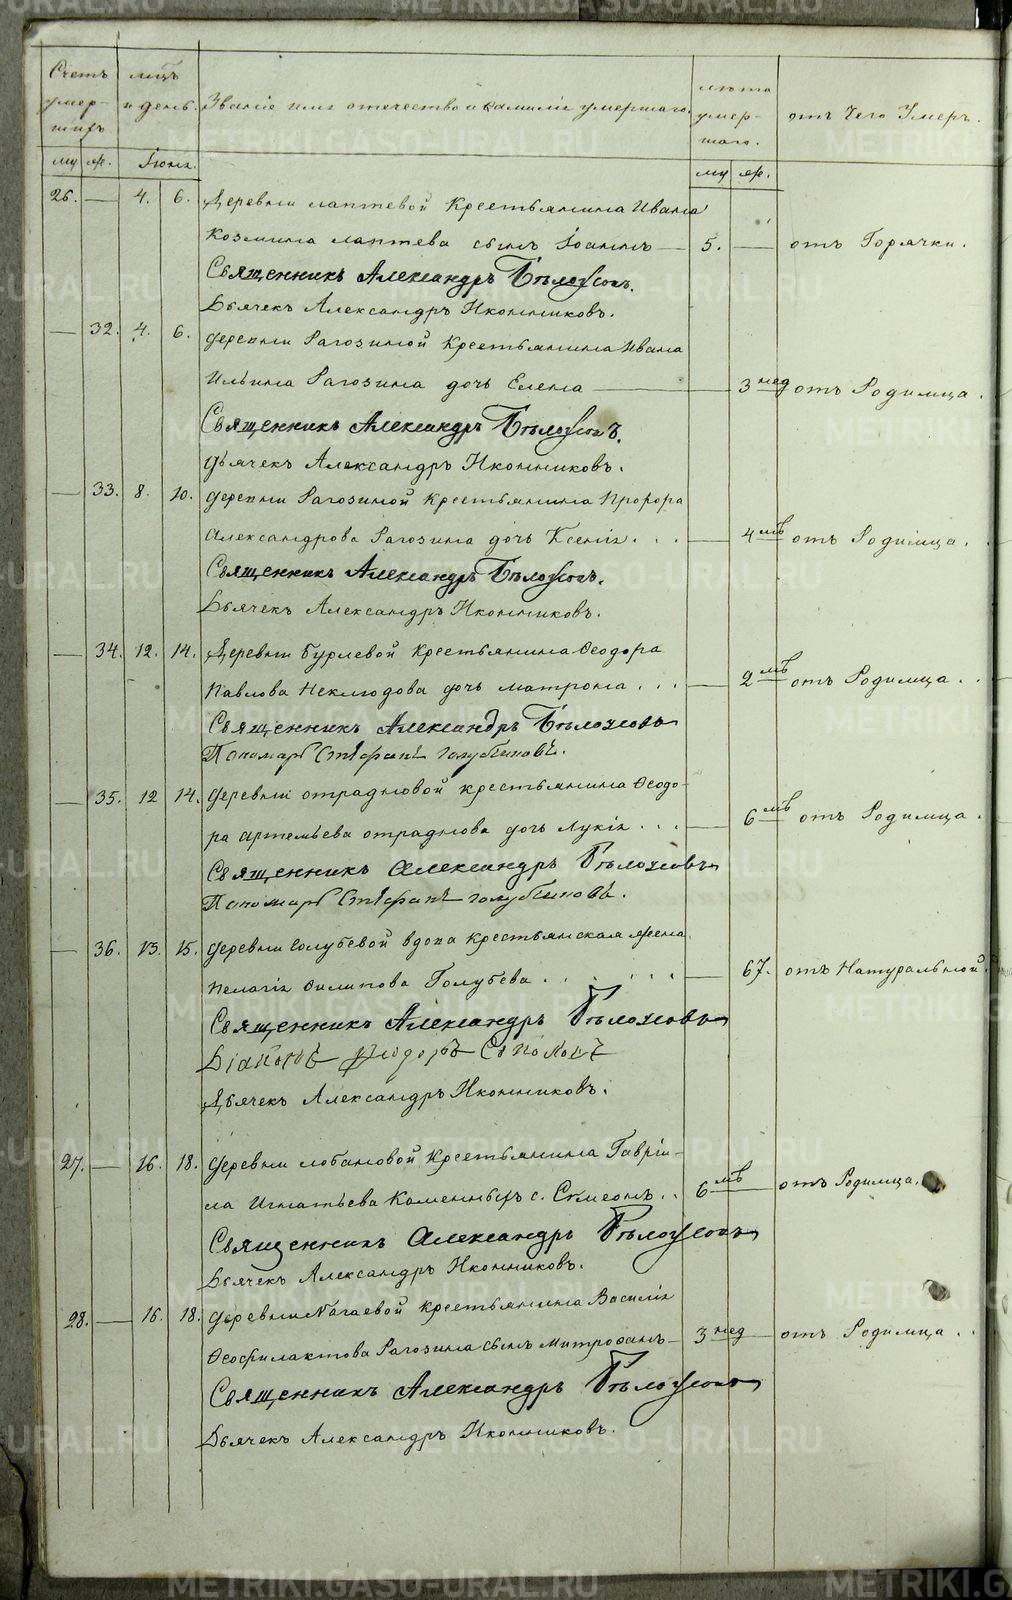 Счетъ умер-шихъ
мцъ и день.
Званіе имя отечество и фамиліи умершаго.
лѣта умер-шаго.
отъ Чего Умеръ.
му же.
Іюня.
му же.
26. — 4. 6. Деревни лаптевой Крестьянина Ивана
Козмина лаптева сынъ Іоаннъ — 5. — отъ Горячки.
Священникъ Александръ Бѣлоусовъ.
Дьячекъ Александръ Иконниковъ.
— 32. 4. 6. деревни Рагозиной Крестьянина Ивана
Ильина Рагозина дочь Елена — 3 нед отъ Родимца.
Священникъ Александръ Бѣлоусовъ.
дьячекъ Александръ Иконниковъ.
— 33. 8. 10. деревни Рагозиной Крестьянина Прохора
Александрова Рагозина дочь Ксенія . . . — 4 мѣ отъ Родимца.
Священникъ Александръ Бѣлоусовъ.
Дьячекъ Александръ Иконниковъ.
— 34. 12. 14. Деревни Бурлевой Крестьянина Ѳеодора
Павлова Неклюдова дочь матрона . . . — 2 мѣ отъ Родимца . .
Священникъ Александръ Бѣлоусовъ
Пономарь Стефанъ Голубчиковъ.
— 35. 12 14. деревни отрадновой крестьянина Ѳеодо-
ра артемьева отраднова дочь Лукія . . . — 6 мѣ отъ Родимца.
Священникъ Александръ Бѣлоусовъ
Пономарь Стефанъ голубчиковъ.
— 36. 13. 15. деревни Голубевой вдова крестьянская жена
Пелагія Филипова Голубева . . . . . — 67. отъ Натуральной.
Священникъ Александръ Бѣлоусовъ
Діаконъ Ѳеодоръ Соколовъ
Дьячекъ Александръ Иконниковъ.
27. — 16. 18. деревни лобановой Крестьянина Гаврі-
ла Игнатьева Каменныхъ с. Симеонъ . . 6 мѣ — отъ Родимца.
Священникъ Александръ Бѣлоусовъ
Дьячекъ Александръ Иконниковъ.
28. — 16. 18. деревни Нагаевой Крестьянина Василія
Ѳеофилактова Рагозина сынъ митрофанъ — 3 нед — отъ Родимца . .
Священникъ Александръ Бѣлоусовъ
Дьячекъ Александръ Иконниковъ.
METRIKI.GASO-URAL.RU